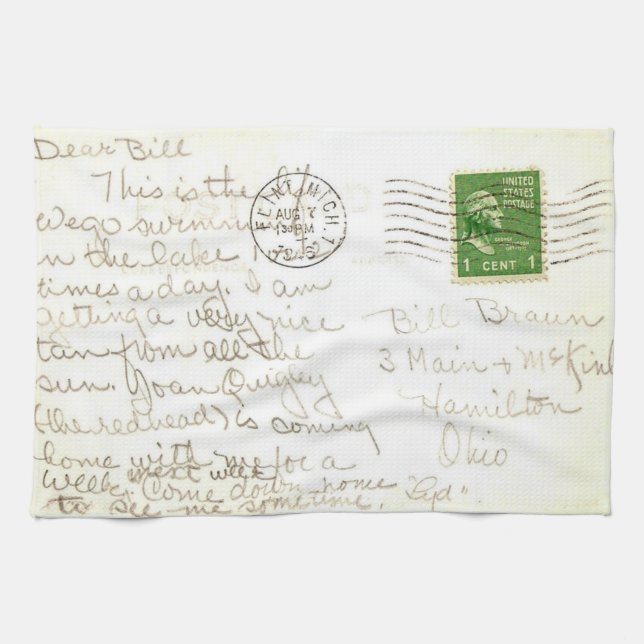 Dear Bill
This is the life
We go swimming
in the lake
times a day. I am
getting a very nice
tan from all the
sun. Joan Quigley
(the redhead) is coming
home with me for a
week next week
Come down home
to see me sometime. "Syd".
FLINT, MICH. 1
AUG 7
1 30 PM
UNITED
STATES
POSTAGE
GEORGE WASHINGTON
1 CENT 1
Bill Braun
3 Main + McKinl
Hamilton
Ohio